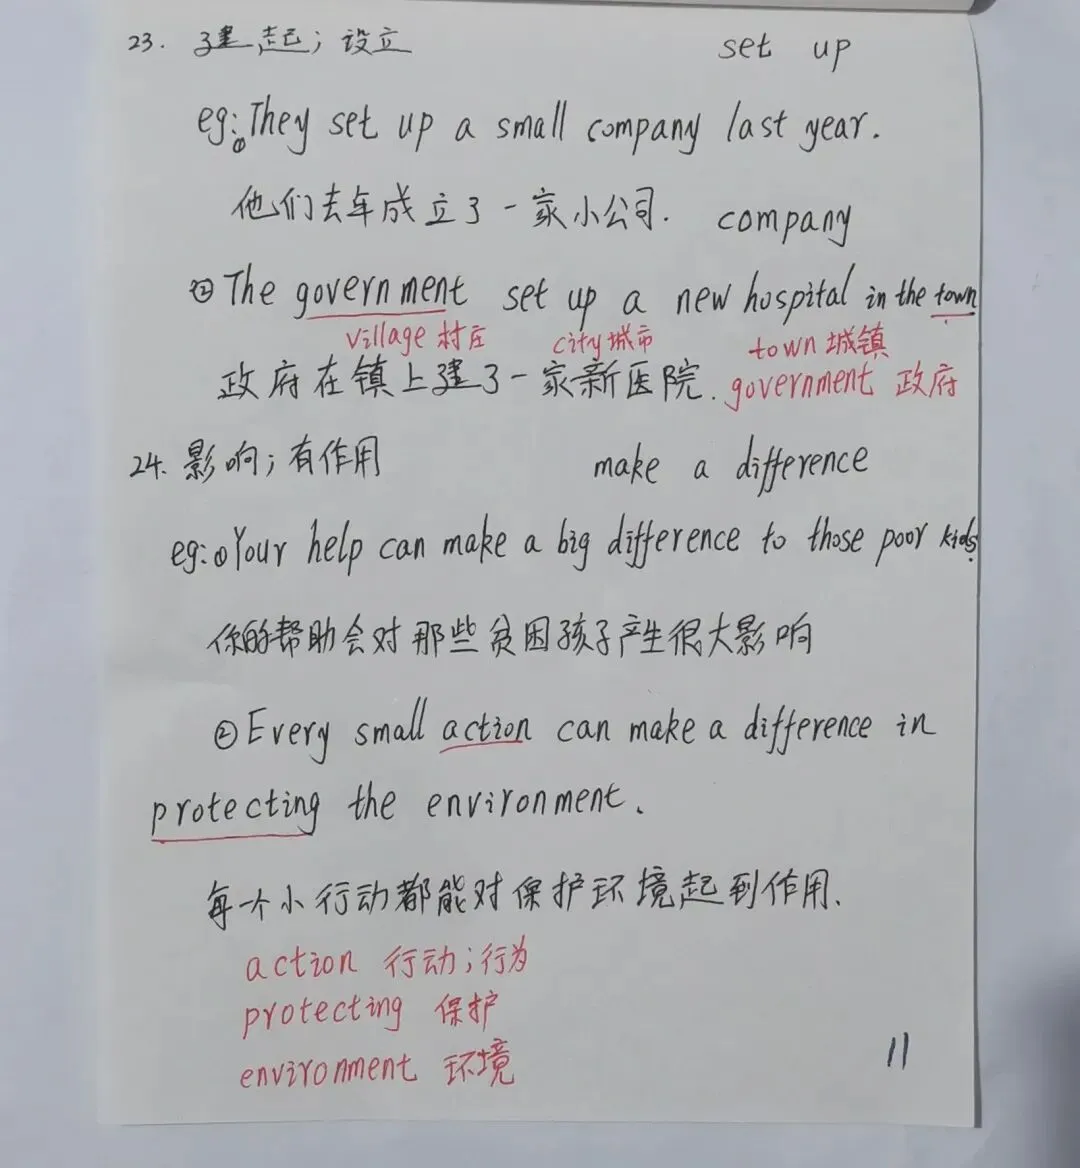 23. 建起；设立 set up
eg:①They set up a small company last year.
他们去年成立了一家小公司. company
②The government set up a new hospital in the town
village 村庄 city 城市 town 城镇
政府在镇上建了一家新医院. government 政府
24. 影响；有作用 make a difference
eg:①Your help can make a big difference to those poor kids.
你的帮助会对那些贫困孩子产生很大影响
②Every small action can make a difference in
protecting the environment.
每一个小行动都能对保护环境起到作用.
action 行动；行为
protecting 保护
environment 环境
11